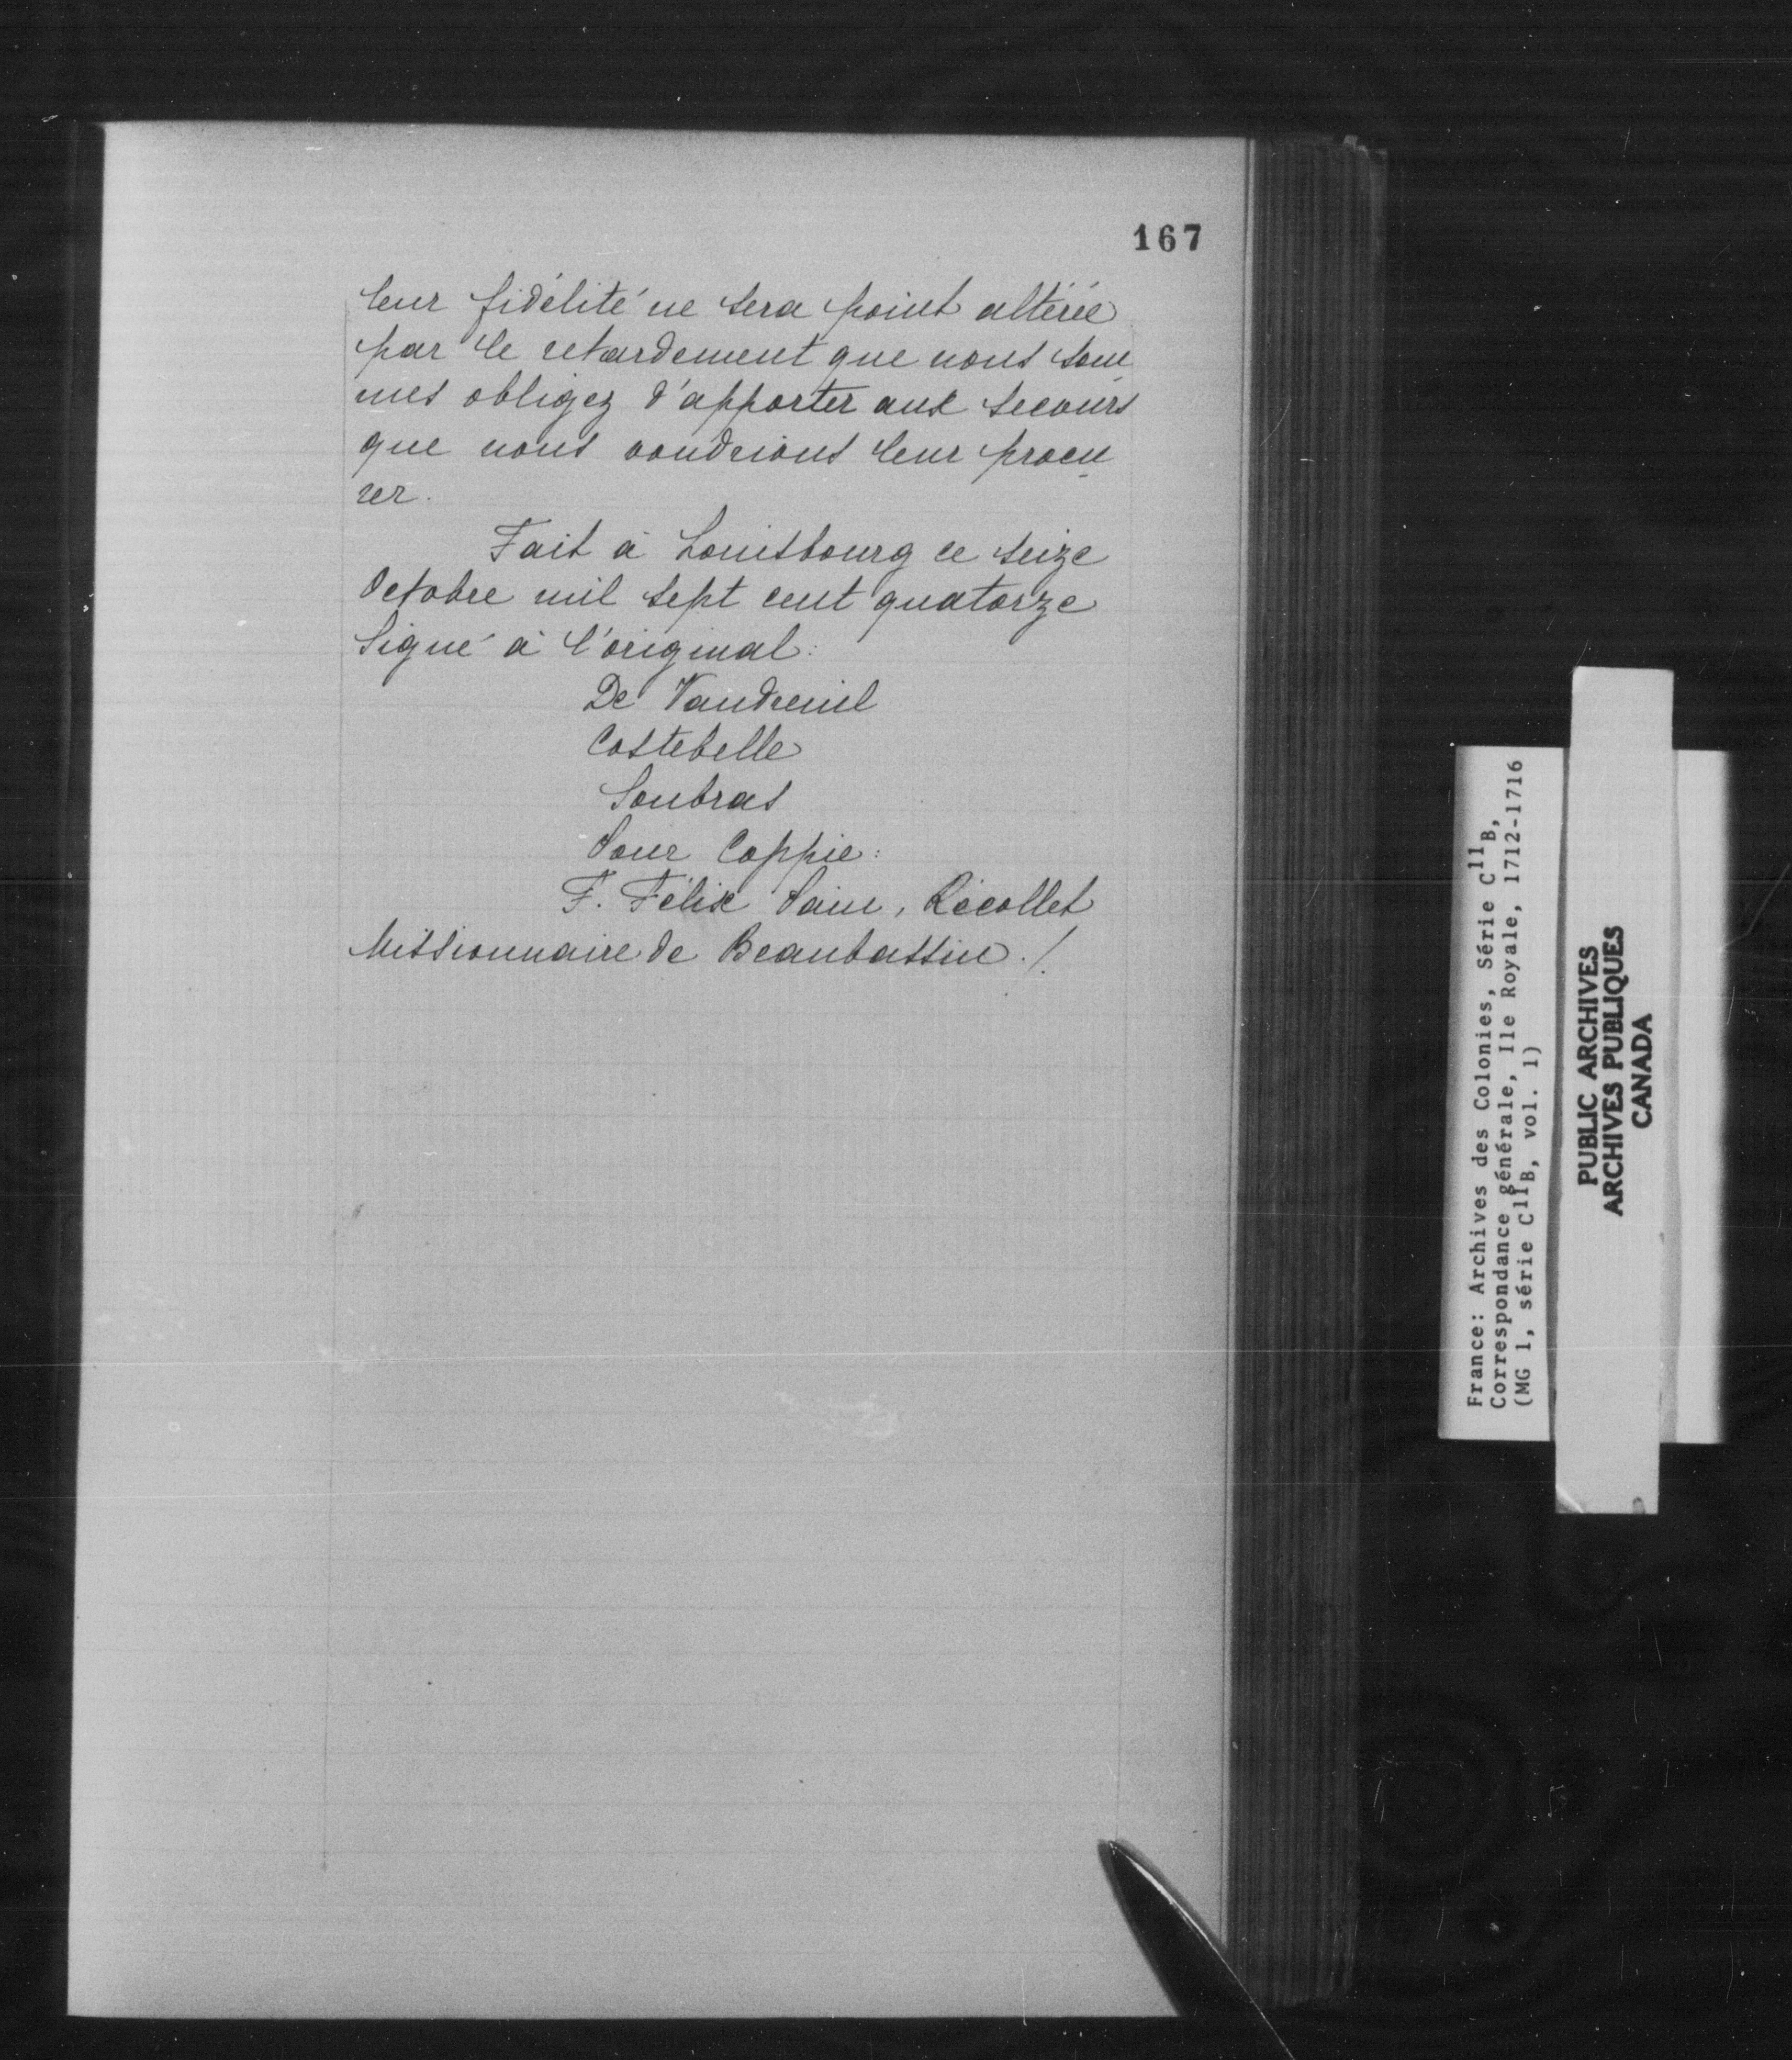 167
leur fidélité ne sera point altérée
par le retardement que nous som
mes obligez d'apporter aux secours
que nous voudrions leur procu
rer.
Fait à Louisbourg ce seize
Octobre mil sept cent quatorze
Signé à l'original:
De Vaudreuil
Costebelle
Soubras
Pour Coppie:
F. Félix Pain, Récollet
Missionnaire de Beaubassin ./.
France: Archives des Colonies, Série C11B,
Correspondance générale, Ile Royale, 1712-1716
(MG 1, série C11B, vol. 1)
PUBLIC ARCHIVES
ARCHIVES PUBLIQUES
CANADA